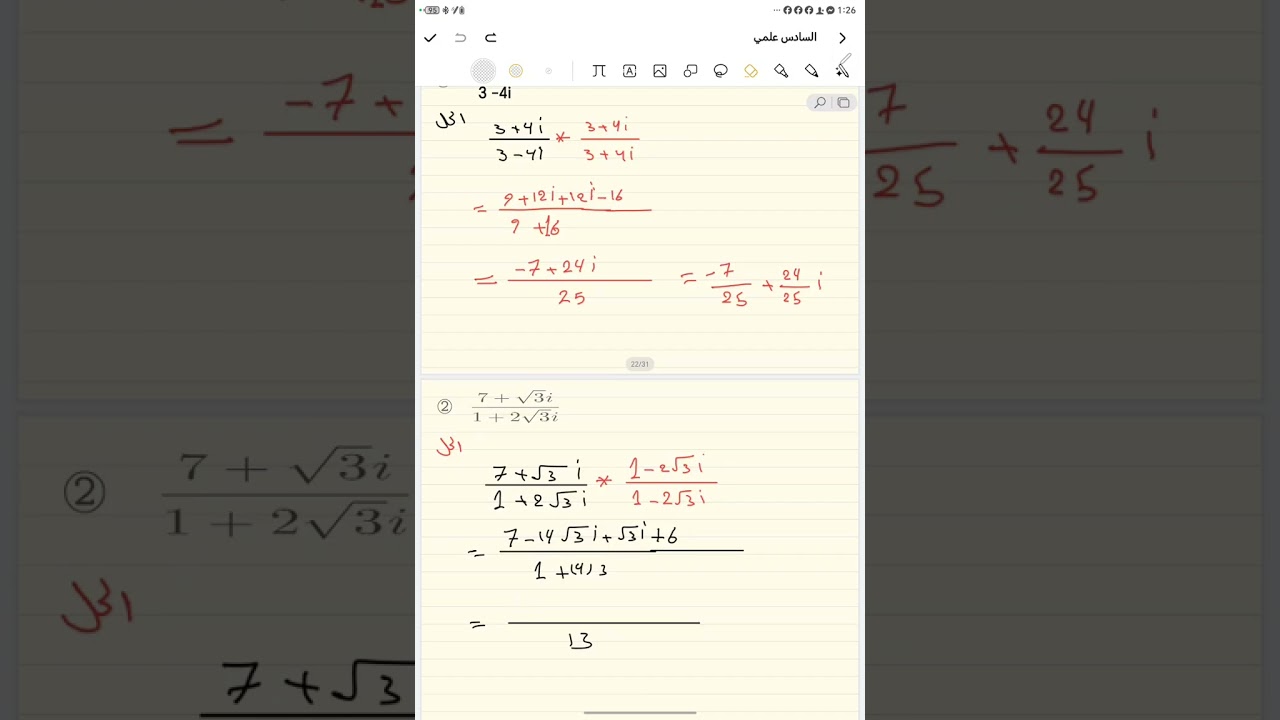 95 1:26
السادس علمي
3 -4i
الحل
3+4i / 3-4i * 3+4i / 3+4i
= 9+12i+12i-16 / 9+16
= -7+24i / 25 = -7/25 + 24/25 i
22/31
② 7 + √3i / 1 + 2√3i
الحل
7+√3 i / 1+2√3 i * 1-2√3 i / 1-2√3 i
= 7-14√3 i+√3 i+6 / 1+(4)3
= 13
= -7 +
7/25 + 24/25 i
② 7 + √3i / 1 + 2√3i
الحل
7+√3